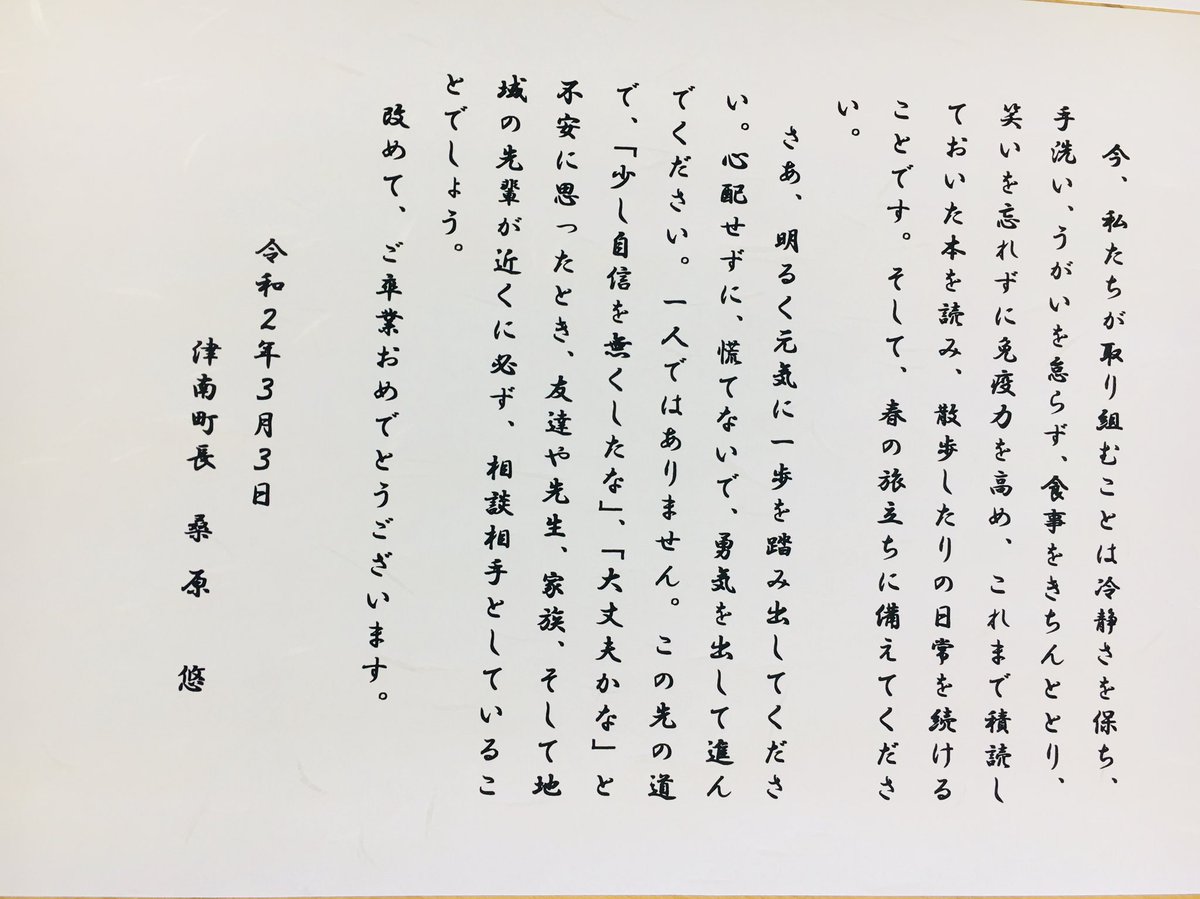 今、私たちが取り組むことは冷静さを保ち、
手洗い、うがいを怠らず、食事をきちんととり、
笑いを忘れずに免疫力を高め、これまで積読し
ておいた本を読み、散歩したりの日常を続ける
ことです。そして、春の旅立ちに備えてくださ
い。
さあ、明るく元気に一歩を踏み出してくださ
い。心配せずに、慌てないで、勇気を出して進ん
でください。一人ではありません。この先の道
で、「少し自信を無くしたな」、「大丈夫かな」と
不安に思ったとき、友達や先生、家族、そして地
域の先輩が近くに必ず、相談相手としているこ
とでしょう。
改めて、ご卒業おめでとうございます。
令和２年３月３日
津南町長 桑原 悠